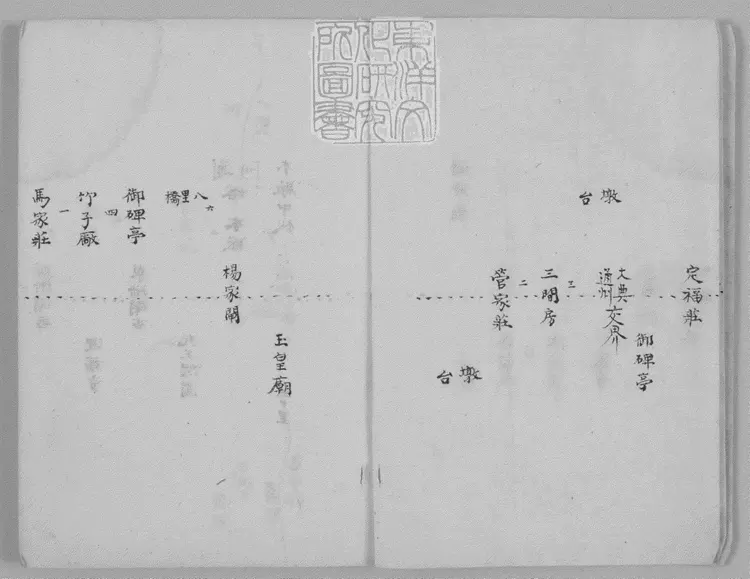 東洋文
化研究
所圖書
定福莊
御碑亭
大興
通州
交界
墩
台
三
三間房
二
管家莊
墩
台
玉皇廟
楊家閘
六
八里橋
御碑亭
四
竹子廠
一
馬家莊